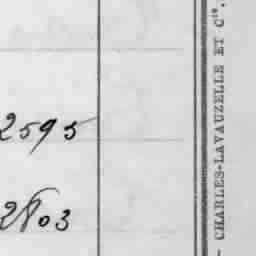 2595
2803
- CHARLES-LAVAUZELLE ET Cie.